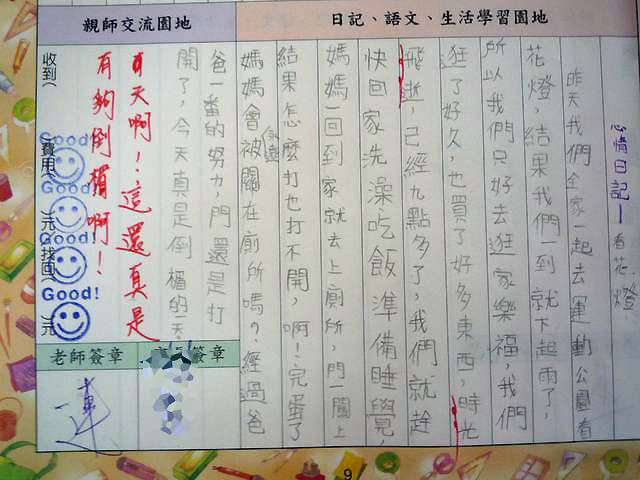 日記、語文、生活學習園地
親師交流園地
心情日記—看花燈
昨天我們全家一起去運動公園看
花燈,結果我們一到就下起雨了,
所以我們只好去逛家樂福,我們
逛了好久,也買了好多東西,時光
飛逝,已經九點多了,我們就趕
快回家先澡吃飯準備睡覺
媽媽一回到家就去上廁所,門一關上
結果怎麼打也打不開,啊!完蛋了
媽媽會被關在廁所嗎?經過爸
永遠
爸一番的努力,門還是打
開了,今天真是倒楣的一天
天啊!這還真是
有夠倒楣啊!
收到( 費用( )元找回( )元
Good!
Good!
Good!
Good!
老師簽章
簽章
9